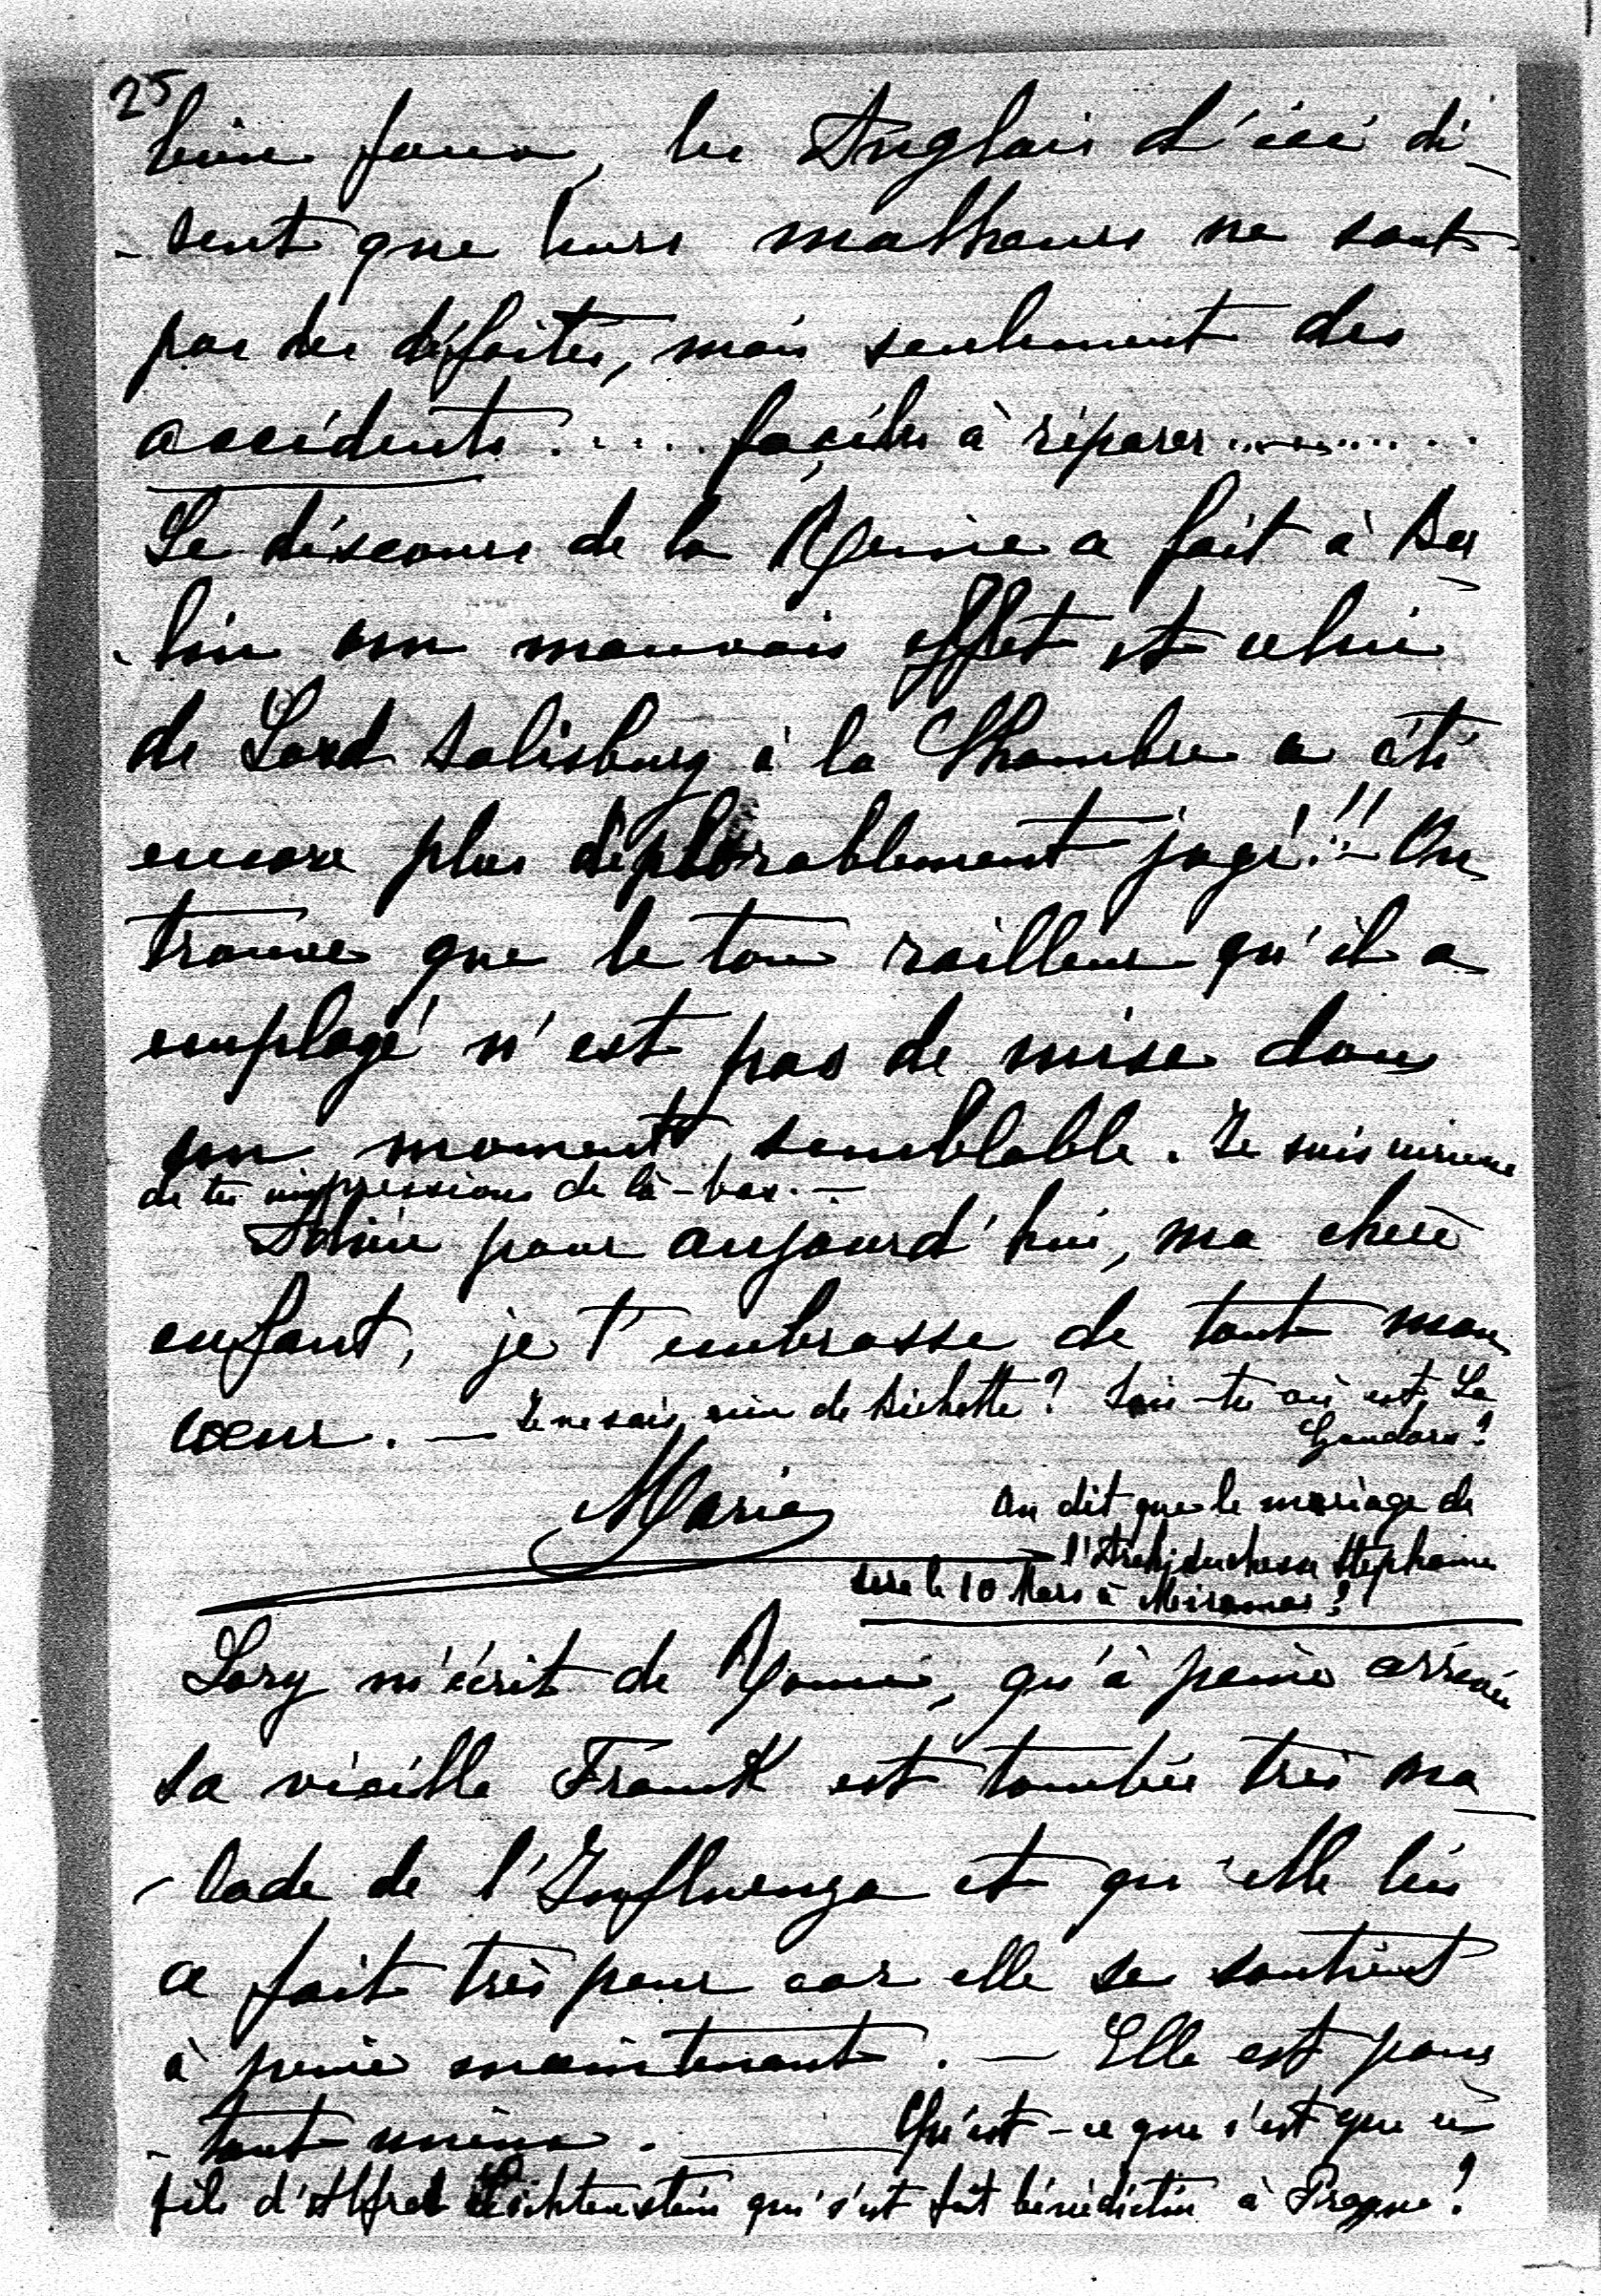 25
bien foux, les Anglais d'ici di-
-sent que leurs malheurs ne sont
pas des défaites, mais seulement des
accidents..... faciles à réparer...........
Le discours de la Reine a fait à Ber-
-lin un mauvais effet et celui
de Lord Salisbury à la Chambre a été
encore plus déplorablement jugé!!! – On
trouve que le ton railleur qu'il a
employé n'est pas de mise dans
un moment semblable. Je suis curieuse
de tes impressions de là-bas. –
Adieu pour aujourd'hui, ma chère
enfant, je t'embrasse de tout mon
coeur. – Je ne sais rien de Bichette? Sais-tu où est La
Gandara?
Marie
On dit que le mariage de
l'Archiduchesse Stéphanie
sera le 10 Mars à Miramar?
Lory m'écrit de Rome, qu'à peine arrivée
sa vieille Frank est tombée très ma-
-lade de l'Influenza et qu'elle lui
a fait très peur car elle se soutient
à peine maintenant. – Elle est pour-
-tant mieux. – Qu'est-ce que c'est que ce
fils d'Alfred Lichtenstein qui s'est fait bénédictin à Prague?